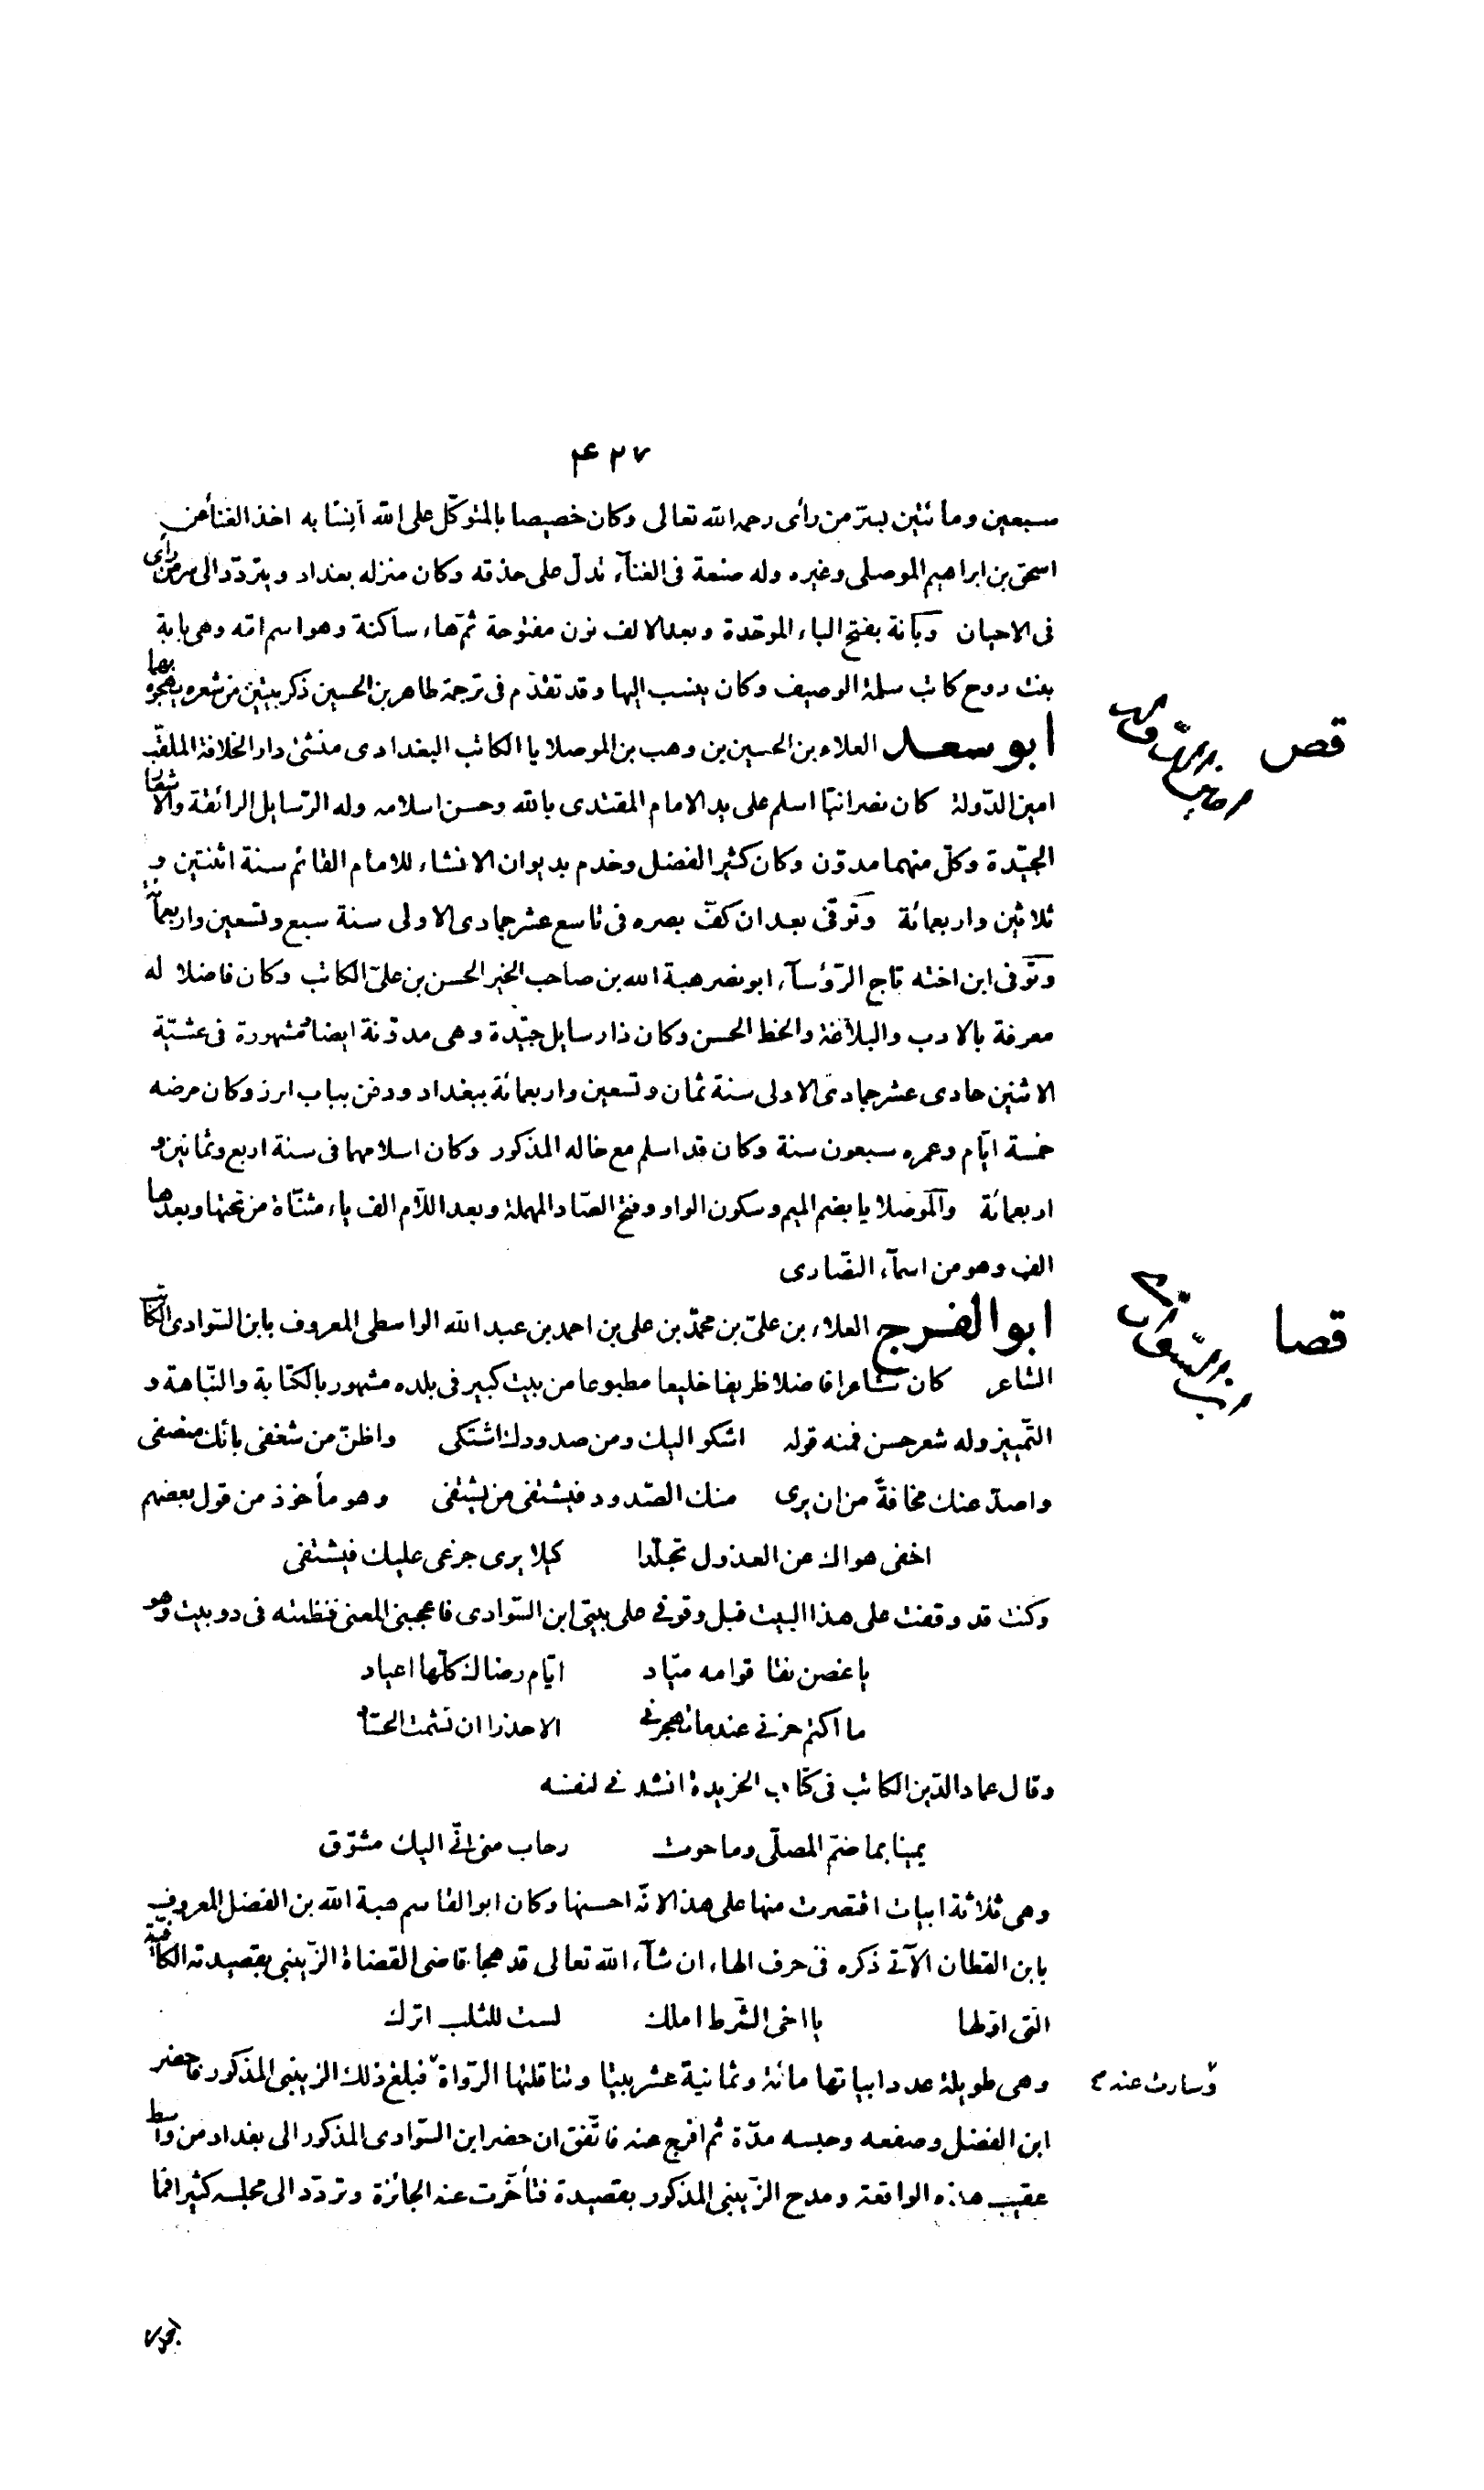 ۴۲۷
سبعين ومأتين بسرّ من رأى رحمه الله تعالى وكان خصيصا بالمتوكّل على الله آنسا به اخذ الغناء عن
اسحق بن ابراهيم الموصلى وغيره وله صنعة فى الغنآء تدلّ على حذقه وكان منزله بغداد ويتردّد الى سرمن رأى
فى الاحيان وبآنة بفتح الباء الموحّدة وبعد الالف نون مفتوحة ثمّ هاء ساكنة وهو اسم امّه وهى بانة
بنت روح كاتب سلمة الوصيف وكان ينسب اليها وقد تقدّم فى ترجمة طاهر بن الحسين ذكر بيتين من شعره يهجوه بهما
قص
ابو سعد العلاء بن الحسين بن وهب بن الموصلايا الكاتب البغدادى منشئ دار الخلافة الملقّب
امين الدّولة كان نصرانيّا اسلم على يد الامام المقتدى بالله وحسن اسلامه وله الرّسايل الرائقة والاشعار
الجيّدة وكلّ منهما مدوّن وكان كثير الفضل وخدم بديوان الانشاء للامام القائم سنة اثنتين و
ثلاثين واربعمائة وتوفّى بعد ان كفّ بصره فى تاسع عشر جمادى الاولى سنة سبع وتسعين واربعمائة
وتوفى ابن اخته تاج الرّؤسآء ابو نصر هبة الله بن صاحب الخبر الحسن بن علىّ الكاتب وكان فاضلا له
معرفة بالادب والبلاغة والخط الحسن وكان ذا رسايل جيّدة وهى مدوّنة ايضا مشهورة فى عشيّة
الاثنين حادى عشر جمادى الاولى سنة ثمان وتسعين واربعمائة ببغداد ودفن بباب ابرز وكان مرضه
خمسة ايّام وعمره سبعون سنة وكان قد اسلم مع خاله المذكور وكان اسلامهما فى سنة اربع وثمانين و
اربعمائة والموصلايا بضم الميم وسكون الواو وفتح الصّاد المهملة وبعد اللّام الف ياء مثنّاة من تحتها وبعدها
الف وهو من اسمآء النصّارى
قصا
ابو الفرج العلاء بن علىّ بن محمّد بن على بن احمد بن عبد الله الواسطى المعروف بابن السّوادى الكاتب
الشاعر كان شاعرا فاضلا ظريفا خليعا مطبوعا من بيت كبير فى بلده مشهور بالكتابة والنّباهة و
التّمييز وله شعر حسن فمنه قوله اشكو اليك ومن صدودك اشتكى واظنّ من شغفى بانّك منصفى
واصدّ عنك مخافةً من ان يرى منك الصّدود فيشتفى من يشتفى وهو مأخوذ من قول بعضهم
اخفى هواك عن العذول تجلّدا كيلا يرى جزعى عليك فيشتفى
وكنت قد وقفت على هذا البيت قبل وقوفى على بيتى ابن السّوادى فاعجبنى المعنى فنظمته فى دوبيت وهو
يا غصن نقا قوامه ميّاد ايّام رضاك كلّها اعياد
ما اكتم حزنى عندما تهجرنى الا حذرا ان تشمت الحسّاد
وقال عماد الدّين الكاتب فى كتاب الخريدة انشدنى لنفسه
يمينا بما ضمّ المصلّى وما حوت رحاب منى انّى اليك مشوّق
وهى ثلاثة ابيات اقتصرت منها على هذا لانّه احسنها وكان ابو القاسم هبة الله بن الفضل المعروف
بابن القطان الآتى ذكره فى حرف الهاء ان شآء الله تعالى قد هجا قاضى القضاة الزّينبى بقصيدته الكافيّة
التى اوّلها يا اخى الشّرط املك لست للثلب اترك
وهى طويلة عدد ابياتها مائة وثمانية عشر بيتا وتناقلتها الرّواة فبلغ ذلك الزينبى المذكور فاحضر
وسارت عنه
ابن الفضل وصفعه وحبسه مدّة ثم افرج عنه فاتّفق ان حضر ابن السّوادى المذكور الى بغداد من واسط
عقيب هذه الواقعة ومدح الزّينبى المذكور بقصيدة فتأخّرت عنه الجائزة وتردّد الى مجلسه كثيرا فما